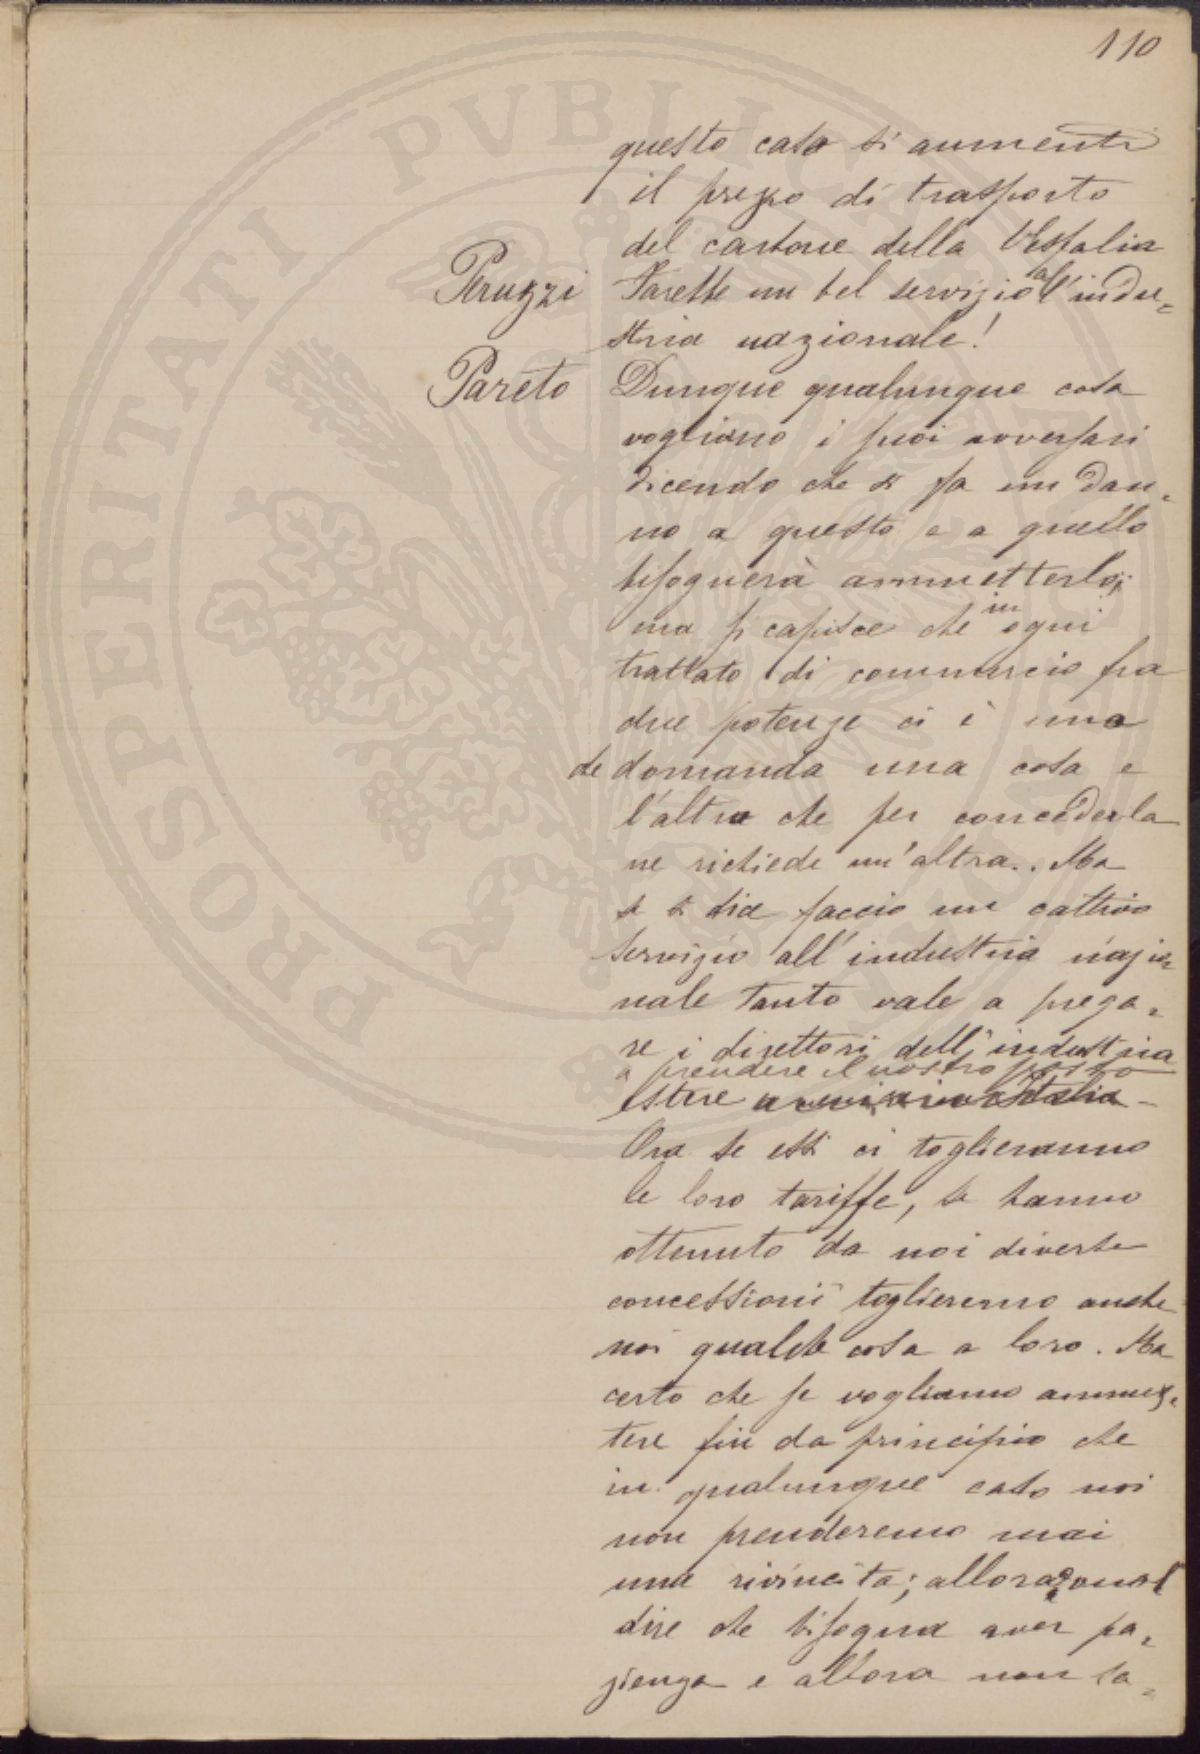 110
questo caso si aumenti
il prezzo di trasporto
del carbone della Vesfalia
Peruzzi Farebbe un bel servizio all'indu=
stria nazionale!
Pareto Dunque qualunque cosa
vogliano i suoi avversari
dicendo che si fa un dan=
no a questo e a quello
bisognerà ammetterlo;
ma si capisce che in ogni
trattato di commercio fra
due potenze ci è una
che domanda una cosa e
l'altra che per concederla
ne richiede un'altra.. Ma
se si dice faccio un cattivo
servizio all'industria nazio
nale tanto vale a prega=
re i direttori dell'industria
a prendere il nostro posto
estere
Ora se essi ci toglieranno
le loro tariffe, se hanno
ottenuto da noi diverse
concessioni toglieremo anche
noi qualche cosa a loro. Ma
certo che se vogliamo ammet=
tere fin da principio che
in qualunque caso noi
non prenderemo mai
una rivincita; allora vuol
dire che bisogna aver pa=
zienza e allora non sa=
PROSPERITATI PVBLICAE